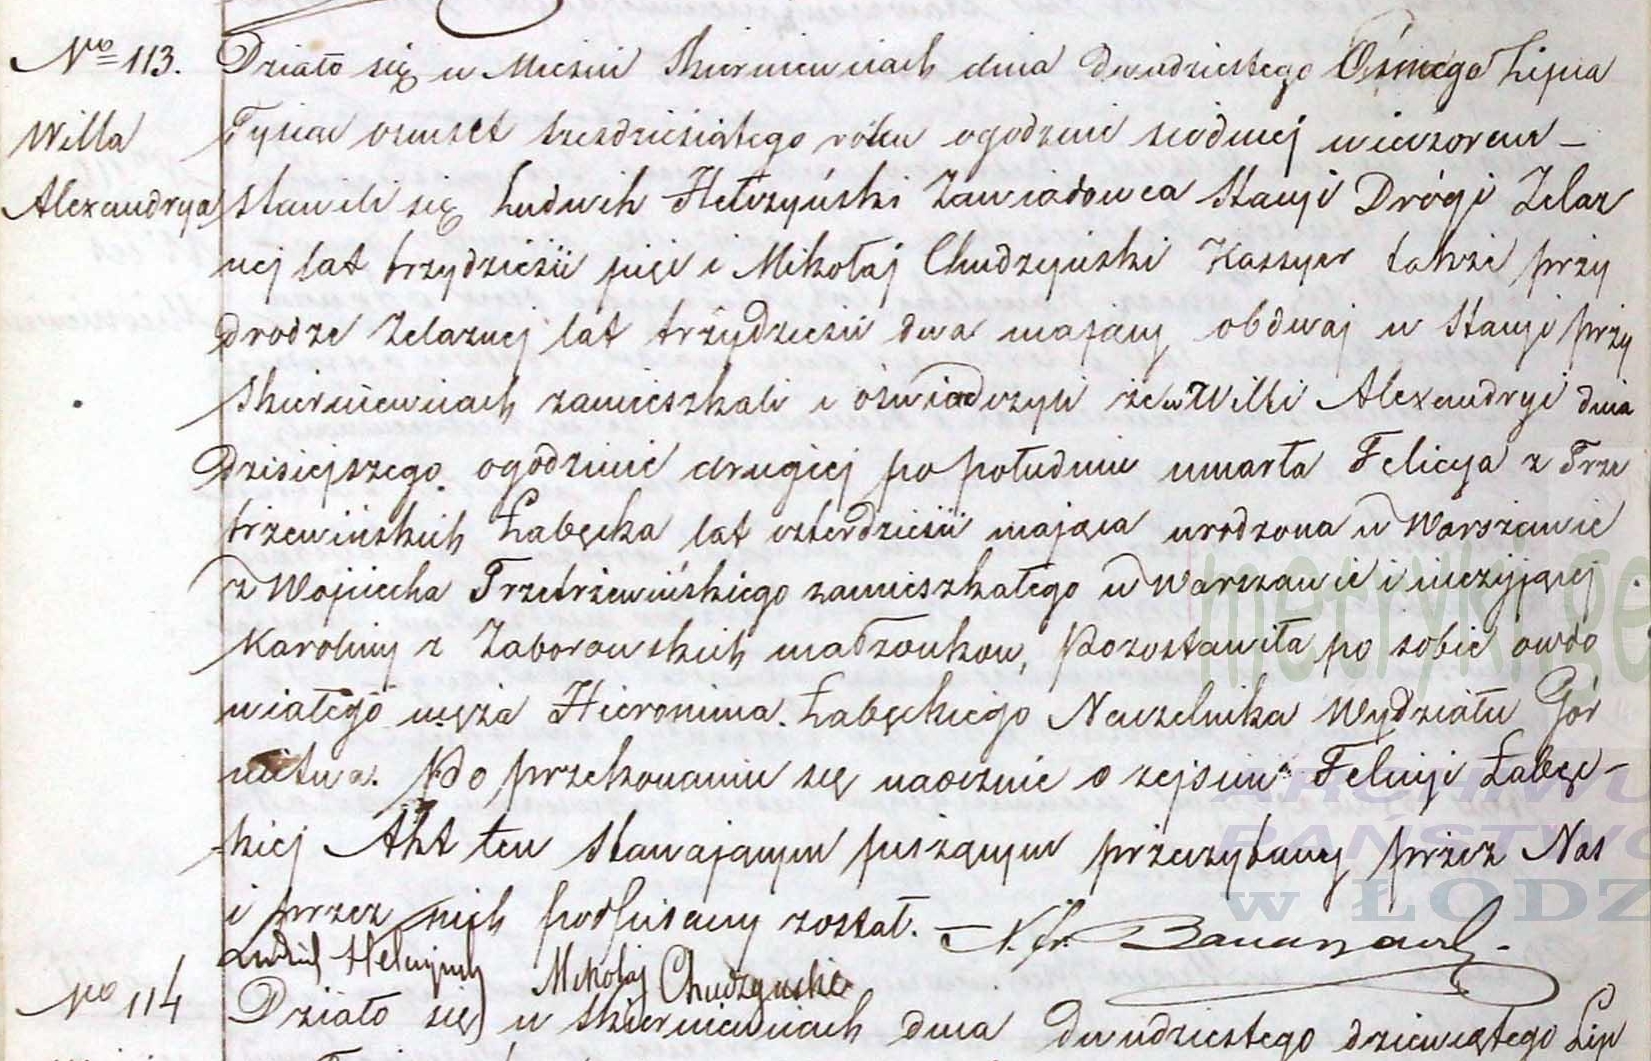 No 113. Działo się w Mieście Skierniewicach dnia dwudziestego Ósmego Lipca
Willa Tysiąc osmset sześdziesiątego roku ogodzinie siodmej wieczorem –
Alexandrya Stawili się Ludwik Hełczyński Zawiadowca Stacyi Drógi Żelaz
nej lat trzydzieści pięć i Mikołaj Chudzyński Kassyer także przy
drodze Żelaznej lat trzydzieści dwa mający obdwaj w Stacyi przy
Skierniewicach zamieszkali i oświadczyli że w Willi Alexandryi dnia
dzisiejszego ogodzinie drugiej po południu umarła Felicya z Trze
trzewińskich Łabęcka lat czterdzieści mająca urodzona w Warszawie
z Wojciecha Trzetrzewińskiego zamieszkałego w Warszawie i nieżyjącej
Karoliny z Zaborowskich małżonkow, Pozostawiła po sobie owdo
wiałego męża Hieronima Łabęckiego Naczelnika Wydziału Gór
nictwa. Po przekonaniu się naocznie o zejściu Felicyi Łabęc–
kiej Akt ten Stawającym piszącym przeczytany przez Nas
i przez nich podpisany został. –
Ludwik Hełczyński Mikołaj Chudzyński
No 114 Działo się w Skierniewicach dnia dwudziestego dziewiątego Lip
metryki.ge
ARCHIWU
PAŃSTWO
w ŁODZ